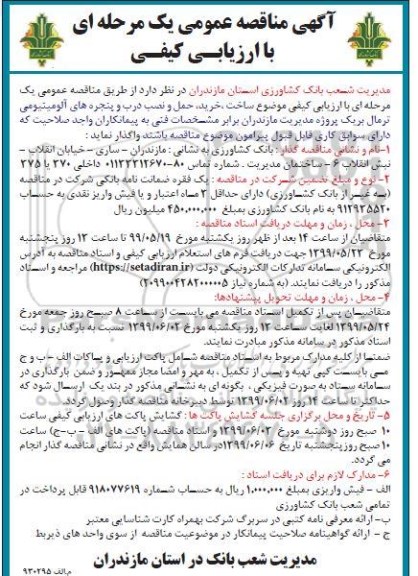 آگهی مناقصه عمومی یک مرحله ای
با ارزیابی کیفی
مدیریت شعب بانک کشاورزی استان مازندران در نظر دارد از طریق مناقصه عمومی یک
مرحله ای با ارزیابی کیفی موضوع ساخت ،خرید، حمل و نصب درب و پنجره های آلومینیومی
ترمال بریک پروژه مدیریت مازندران برابر مشخصات فنی به پیمانکاران واجد صلاحیت که
دارای سوابق کاری قابل قبول پیرامون موضوع مناقصه باشند واگذار نماید :
۱-نام و نشانی مناقصه گذار : بانک کشاورزی به نشانی : مازندران – ساری – خیابان انقلاب –
نبش انقلاب ۶ – ساختمان مدیریت . شماره تماس ۸۰-۰۱۱۳۳۳۱۲۶۷۰ داخلی ۲۷۰ یا ۲۷۵
۲- نوع و مبلغ تضمین شرکت در مناقصه : یک فقره ضمانت نامه بانکی شرکت در مناقصه
(به غیر از بانک کشاورزی) دارای حداقل ۳ ماه اعتبار و یا فیش واریز نقدی به حساب
۹۱۲۹۳۵۵۲۰ به نام بانک کشاورزی بمبلغ ۴۵۰,۰۰۰,۰۰۰ میلیون ریال
۳- محل ، زمان و مهلت دریافت اسناد مناقصه :
متقاضیان از ساعت ۱۴ بعد از ظهر روز یکشنبه مورخ ۹۹/۰۵/۱۹ تا ساعت ۱۲ روز پنجشنبه
مورخ ۱۳۹۹/۰۵/۲۳ جهت دریافت فرم های استعلام ارزیابی کیفی و اسناد مناقصه به آدرس
الکترونیکی سامانه تدارکات الکترونیکی دولت (https://setadiran.ir) مراجعه و اسناد
مذکور را دریافت نمایند. (به شماره نیاز ۲۰۹۹۰۰۴۲۸۲۰۰۰۰۰۵)
۴- محل ، زمان و مهلت تحویل پیشنهادها:
متقاضیان پس از تکمیل اسناد مناقصه می بایست از ساعت ۸ صبح روز جمعه مورخ
۱۳۹۹/۰۵/۲۴ لغایت ساعت ۱۲ روز یکشنبه مورخ ۱۳۹۹/۰۶/۰۲ نسبت به بارگذاری و ثبت
اسناد مذکور در سامانه مذکور مبادرت نمایند.
ضمنا از کلیه مدارک مربوط به اسناد مناقصه شامل پاکت ارزیابی و پاکات الف -ب و ج
می بایست کپی تهیه و پس از تکمیل ، به مهر و امضا مجاز ممهور و ضمن بارگذاری در
سامانه ستاد به صورت فیزیکی ، بگونه ای به نشانی مذکور در بند یک ارسال شود که
حداکثر تا ساعت ۱۴ روز ۱۳۹۹/۰۶/۰۲ توسط دبیرخانه مناقصه گذار وصول گردد.
۵- تاریخ و محل برگزاری جلسه گشایش پاکت ها : گشایش پاکت های ارزیابی کیفی ساعت
۱۰ صبح روز دوشنبه مورخ ۱۳۹۹/۰۶/۰۳ و اسناد مناقصه (پاکت های الف -ب-ج) ساعت
۱۰ صبح روز پنجشنبه تاریخ ۱۳۹۹/۰۶/۰۶ در سالن همایش واقع در نشانی مناقصه گذار انجام
می گردد.
۶- مدارک لازم برای دریافت اسناد :
الف - فیش واریزی بمبلغ ۱,۰۰۰,۰۰۰ ریال به حساب شماره ۹۱۸۰۷۷۶۱۹ قابل پرداخت در
تمامی شعب بانک کشاورزی
ب- ارائه معرفی نامه کتبی در سربرگ شرکت بهمراه کارت شناسایی معتبر
ج - ارائه گواهینامه صلاحیت پیمانکار در موضوعیت مناقصه از سوی واحد های ذیربط
مدیریت شعب بانک در استان مازندران
م.الف ۹۳۰۲۹۵